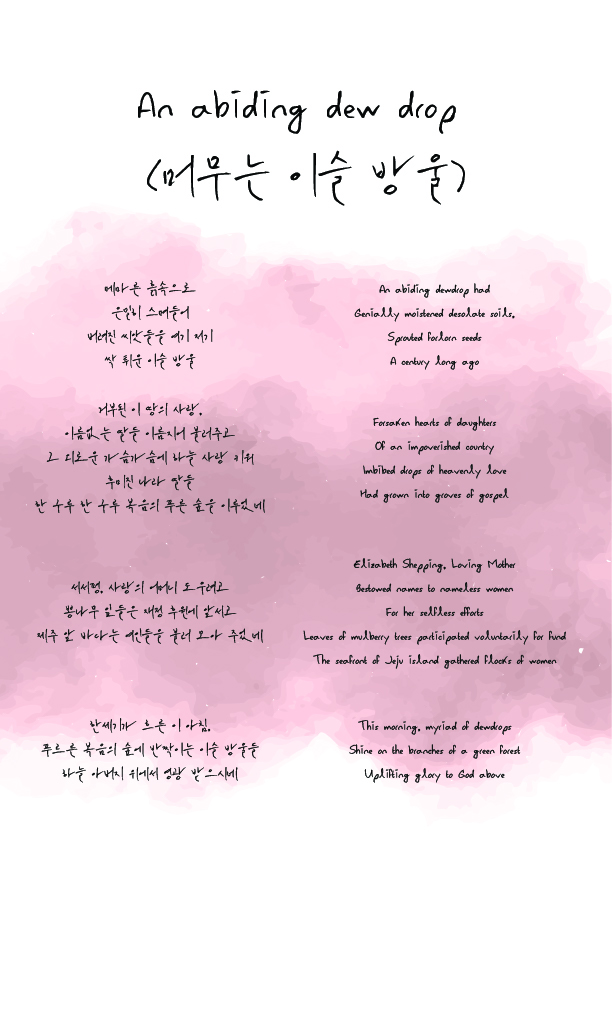 An abiding dew drop
(머무는 이슬 방울)
메마른 흙속으로
은밀히 스며들어
버려진 씨앗들을 여기 저기
싹 틔운 이슬 방울
거부된 이 땅의 사랑.
이름없는 딸들 이름지어 불러주고
그 외로운 가슴가슴에 하늘 사랑 키워
추미진 나라 딸들
한 구루 한 구루 복음의 푸른 숲을 이루었네
서서평. 사랑의 어머니 도우려고
뽕나무 잎들은 재정 후원에 앞서고
제주 앞 바다는 여인들을 불러 모아 주었네
한세기가 흐른 이 아침.
푸르른 복음의 숲에 반짝이는 이슬 방울들
하늘 아버지 위에서 영광 받으시네
An abiding dewdrop had
Genially moistened desolate soils.
Sprouted forlorn seeds
A century long ago
Forsaken hearts of daughters
Of an impoverished country
Imbibed drops of heavenly love
Had grown into groves of gospel
Elizabeth Shepping. Loving Mother
Bestowed names to nameless women
For her selfless efforts
Leaves of mulberry trees participated voluntarily for fund
The seafront of Jeju island gathered flocks of women
This morning. myriad of dewdrops
Shine on the branches of a green forest
Uplifting glory to God above